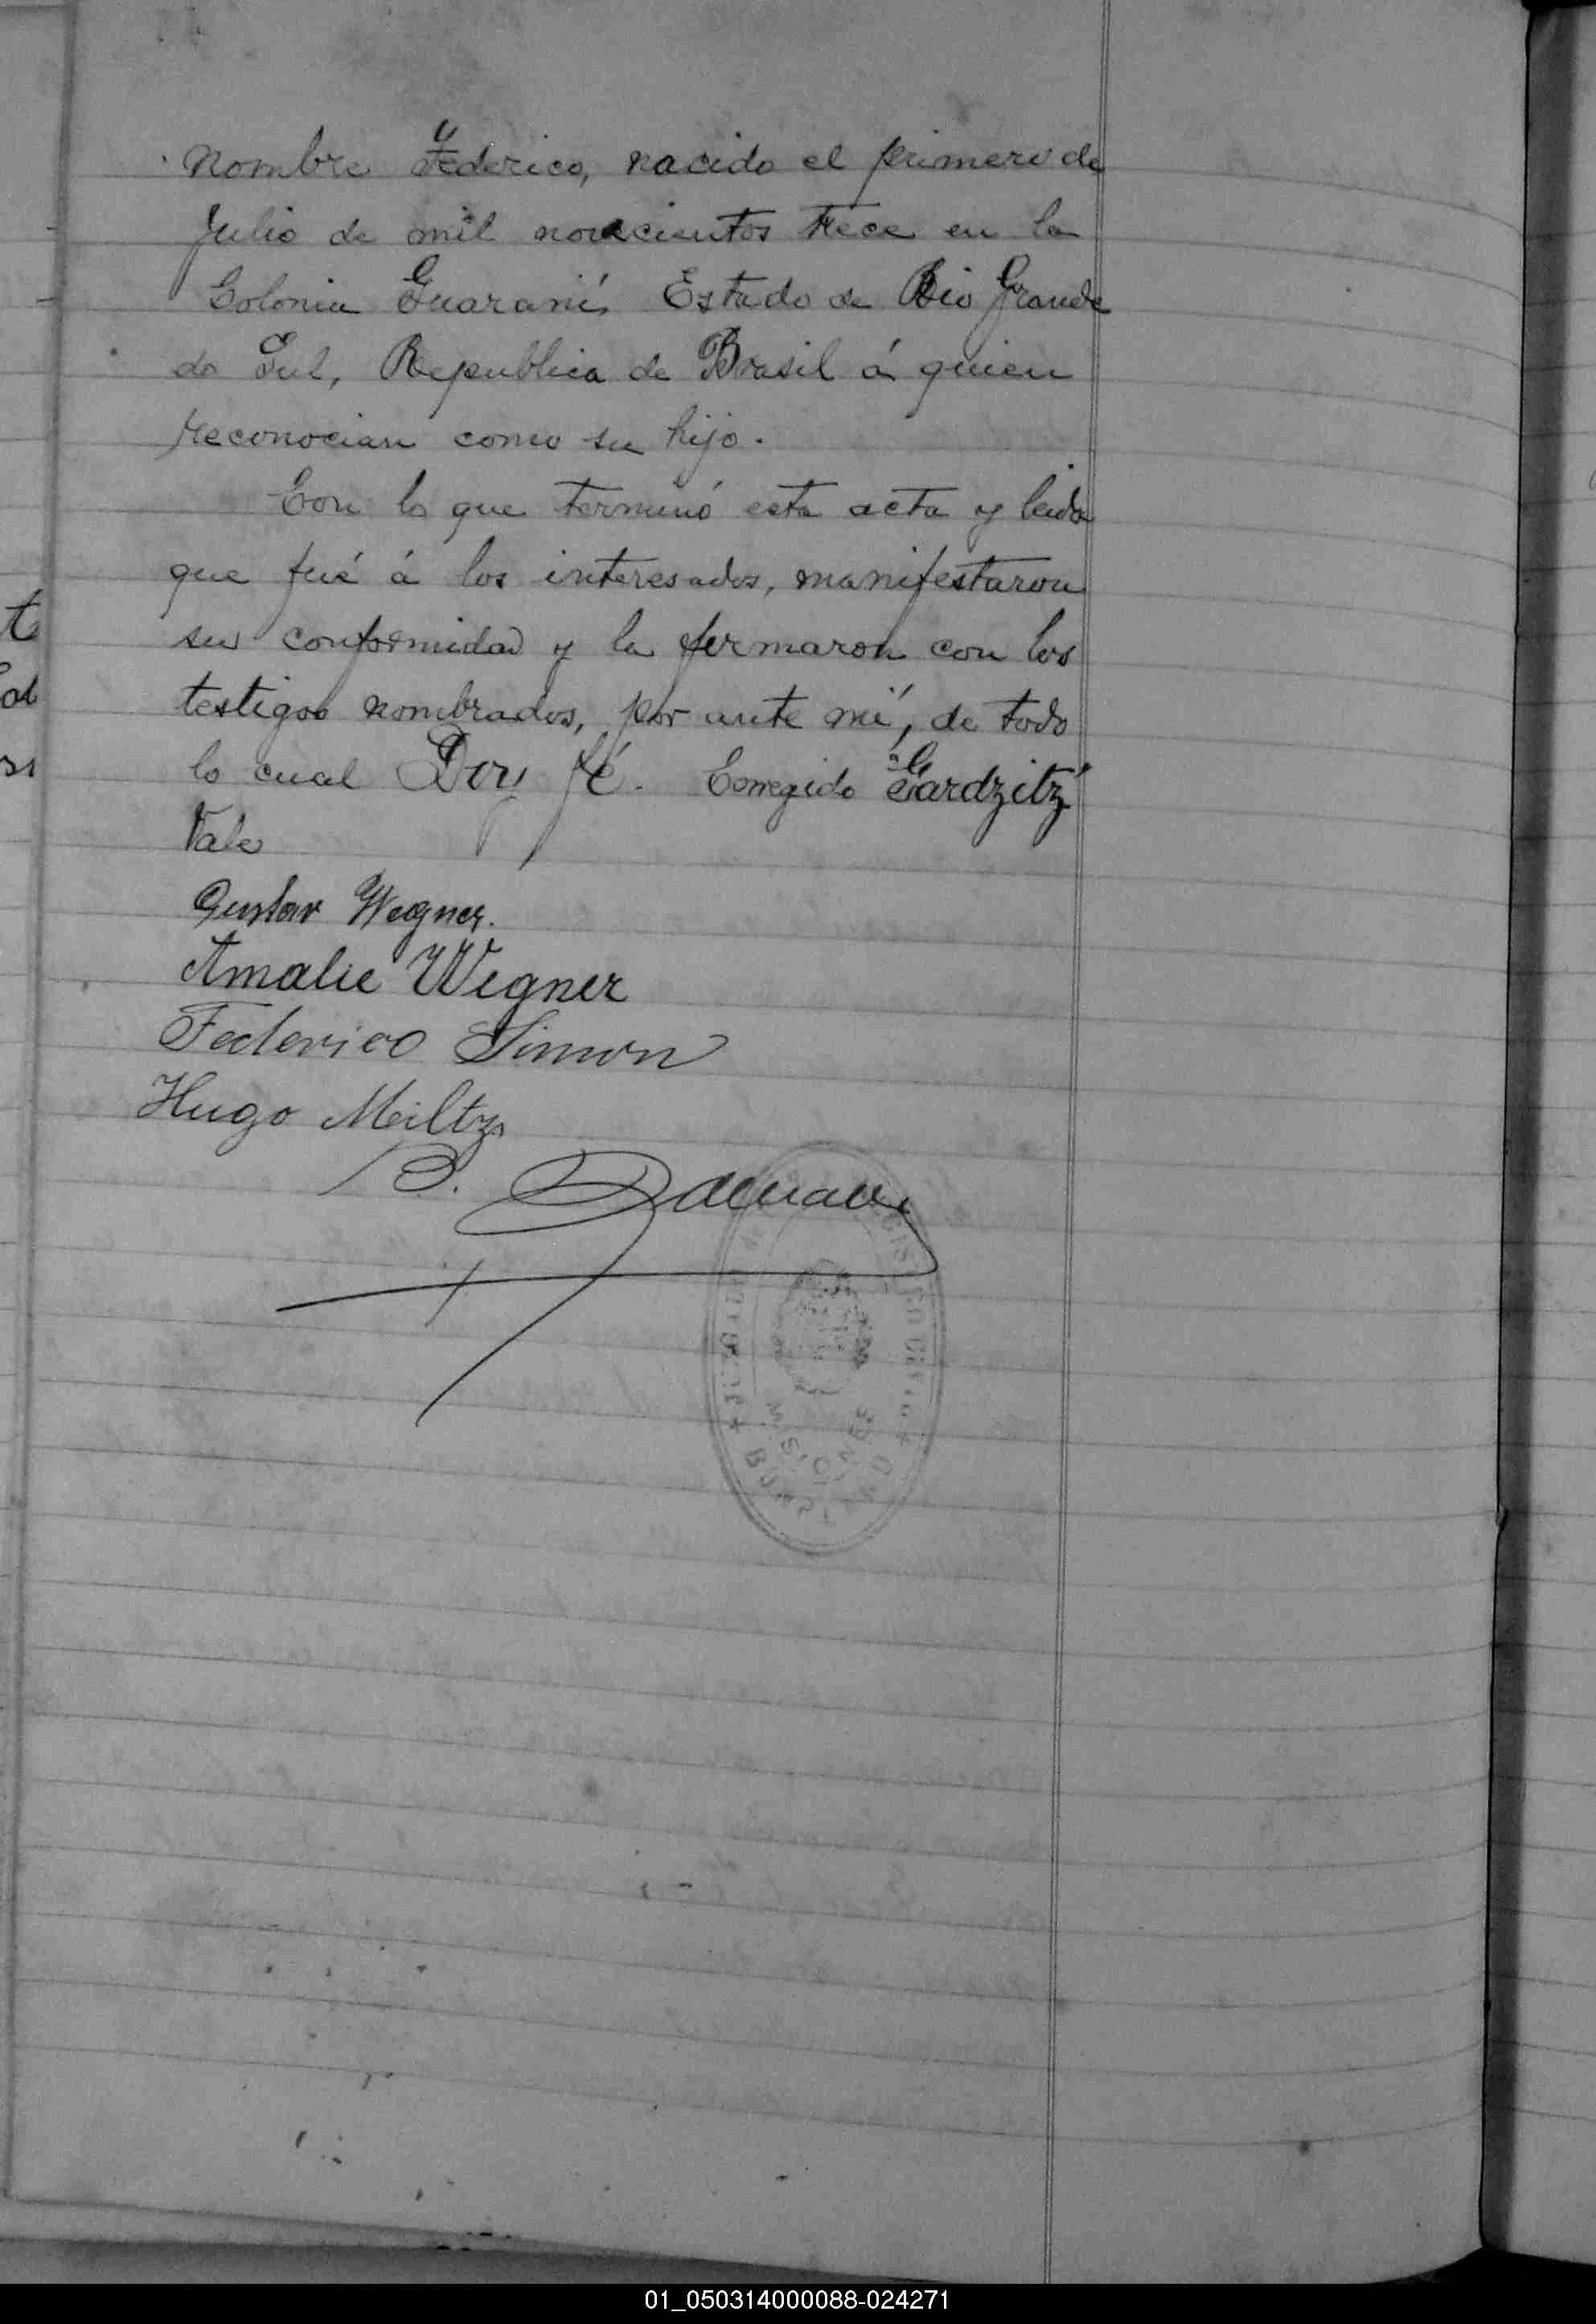 nombre Federico, nacido el primero de
Julio de mil novecientos trece en la
Colonia Guaraní, Estado de Rio Grande
do Sul, Republica de Brasil á quien
reconocian como su hijo.
Con lo que terminó esta acta y leida
que fué á los interesados, manifestaron
su conformidad y la firmaron con los
testigos nombrados, por ante mí, de todo
lo cual Doy fé. Corregido "Gardzitz"
Vale
Gustav Wegner.
Amalie Wegner
Federico Simon
Hugo Miltz
B.
MISIONES
01_050314000088-024271